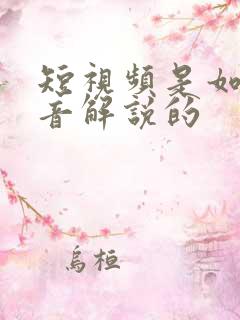 短視頻是如
音解說的
烏桓